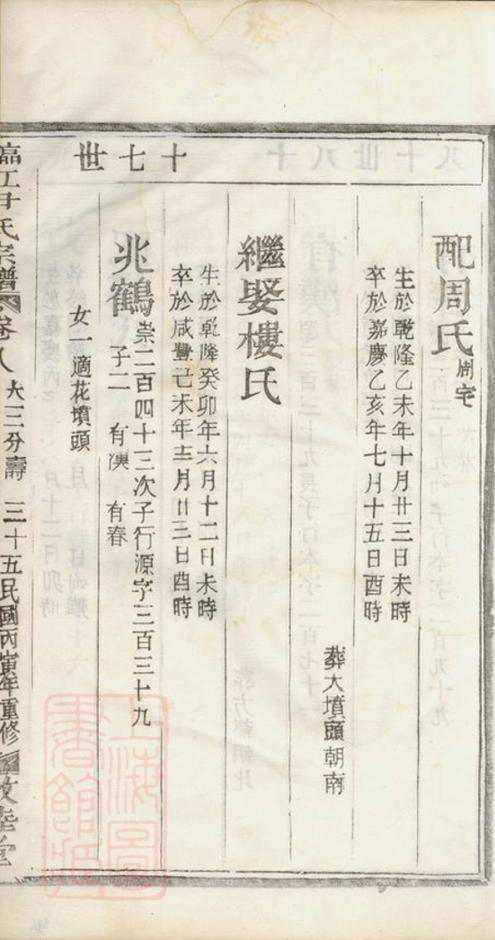 十七世
配周氏周宅
生於乾隆乙未年十月廿三日未時
卒於嘉慶乙亥年七月十五日酉時
葬大墳頭朝南
繼娶樓氏
生於乾隆癸卯年六月十二日未時
卒於咸豐己未年十二月廿三日酉時
兆鶴崇二百四十三次子行源字三百三十九
子二 有漢 有春
女一適花墳頭
臨江尹氏宗譜 卷八 大三分壽 三十五 民國丙寅年重修 敦睦堂
上海圖書館藏